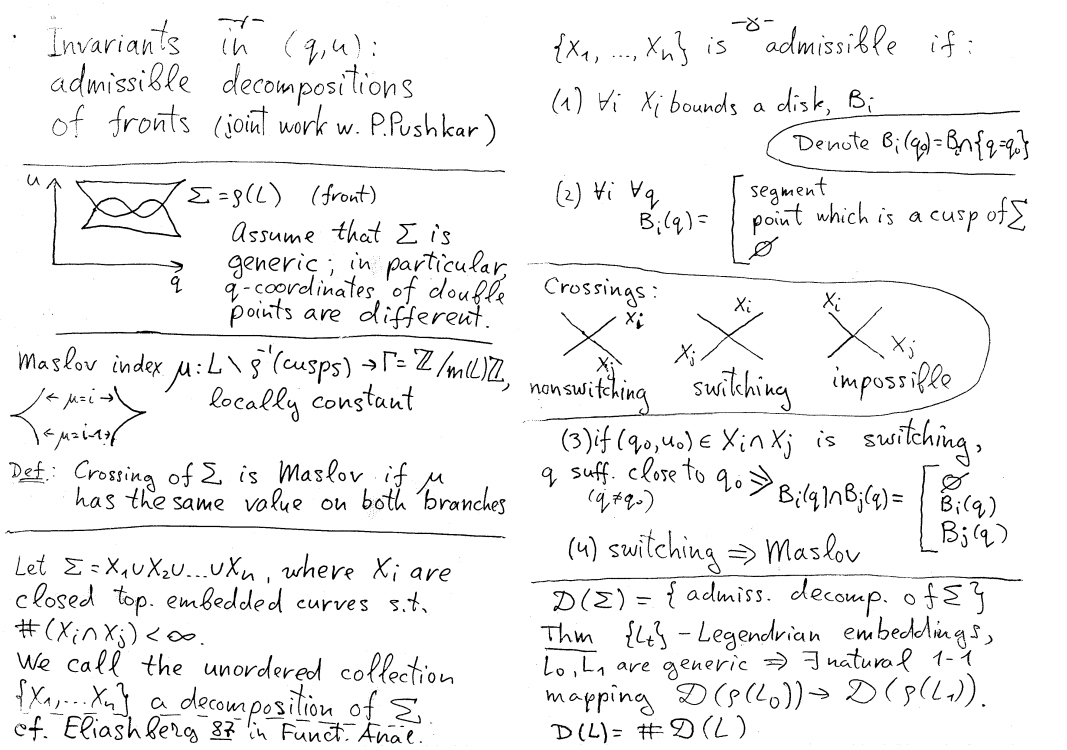 Invariants in (q,u):
admissible decompositions
of fronts (joint work w. P.Pushkar)
u
Σ = ρ(L) (front)
Assume that Σ is
generic; in particular,
q-coordinates of double
points are different.
q
Maslov index μ: L \ ρ⁻¹(cusps) → Γ = ℤ/m(L)ℤ,
locally constant
← μ=i →
← μ=i-1 →
Def: Crossing of Σ is Maslov if μ
has the same value on both branches
Let Σ = X₁∪X₂∪...∪Xₙ, where Xᵢ are
closed top. embedded curves s.t.
#(Xᵢ∩Xⱼ) < ∞.
We call the unordered collection
{X₁,...Xₙ} a decomposition of Σ
cf. Eliashberg 87 in Funct. Anal.
-γ-
{X₁, ..., Xₙ} is admissible if:
(1) ∀i Xᵢ bounds a disk, Bᵢ
Denote Bᵢ(q₀)=Bᵢ∩{q=q₀}
(2) ∀i ∀q
Bᵢ(q) = [ segment
point which is a cusp of Σ
∅
Crossings:
Xᵢ
Xⱼ
nonswitching
Xᵢ
Xⱼ
switching
Xᵢ
Xⱼ
impossible
(3) if (q₀,u₀) ∈ Xᵢ∩Xⱼ is switching,
q suff. close to q₀ ⇒
(q≠q₀)
Bᵢ(q)∩Bⱼ(q) = [ ∅
Bᵢ(q)
Bⱼ(q)
(4) switching ⇒ Maslov
D(Σ) = {admiss. decomp. of Σ}
Thm {Lₜ} - Legendrian embeddings,
L₀, L₁ are generic ⇒ ∃ natural 1-1
mapping D(ρ(L₀)) → D(ρ(L₁)).
D(L) = # D(L)